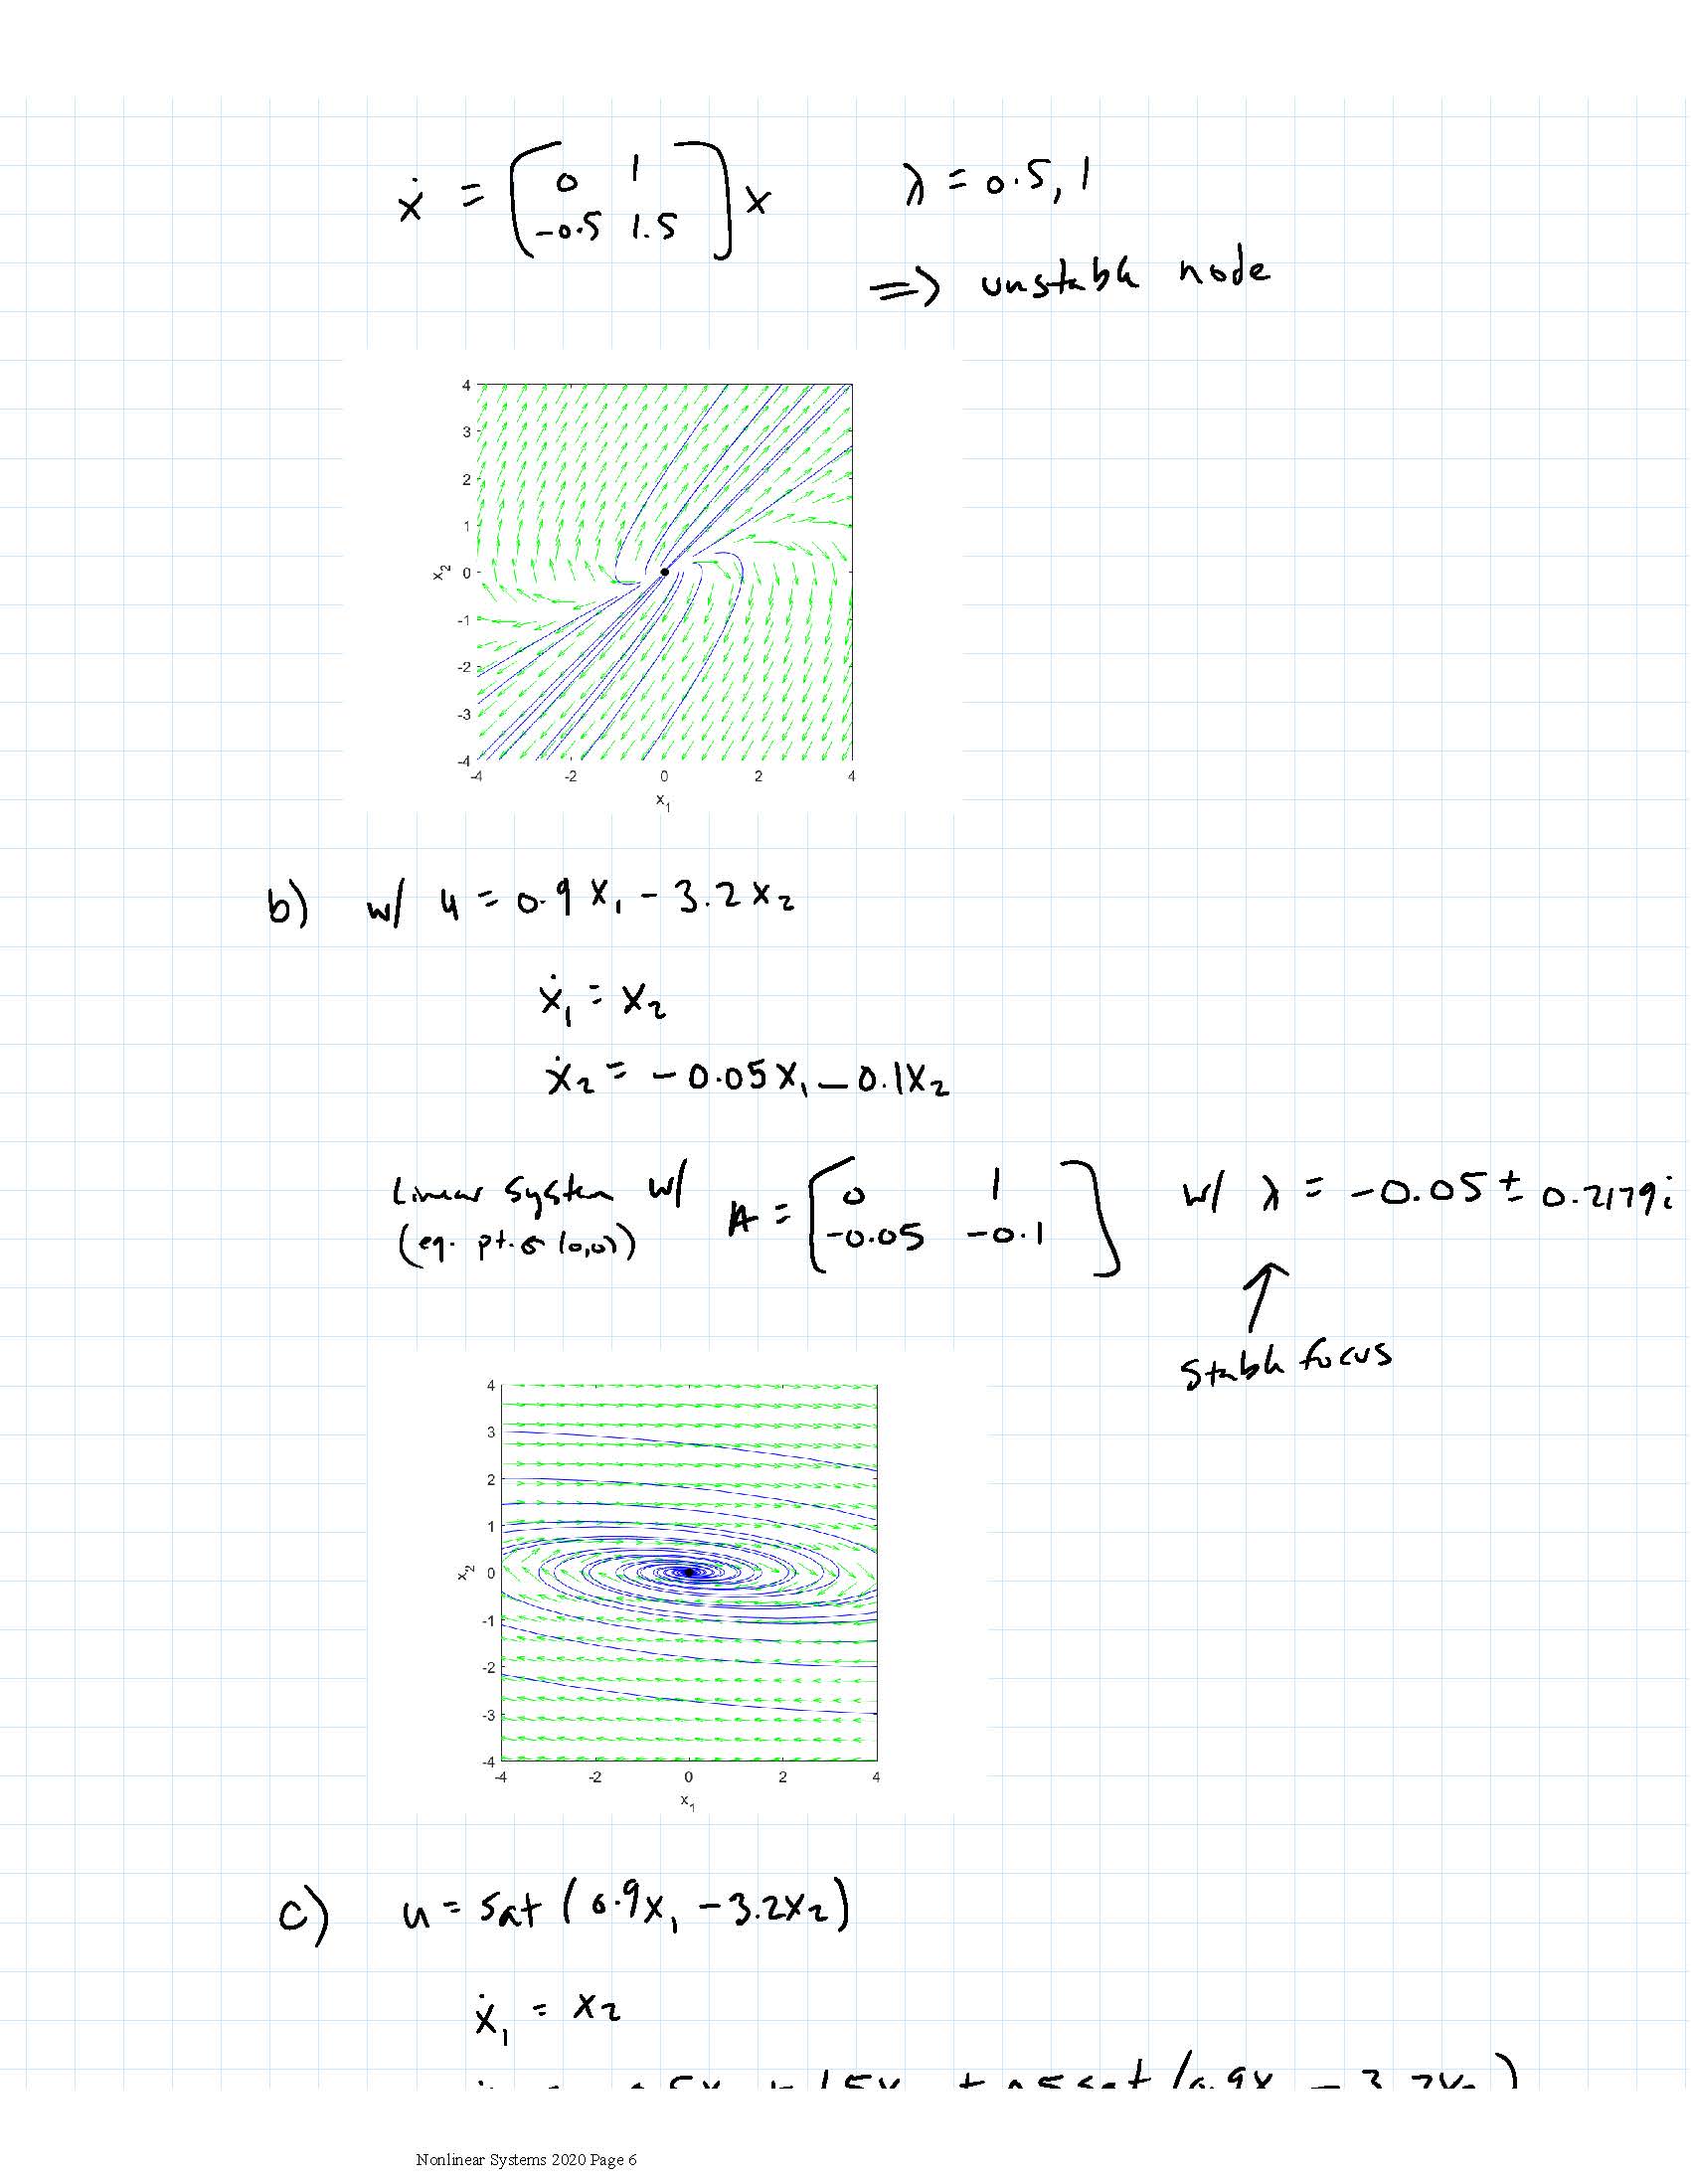 ẋ = [0 1; -0.5 1.5] x    λ = 0.5, 1
=> unstable node
4
3
2
1
0
-1
-2
-3
-4
x₂
-4 -2 0 2 4
x₁
b) w/ u = 0.9x₁ - 3.2x₂
ẋ₁ = x₂
ẋ₂ = -0.05x₁ - 0.1x₂
Linear system w/ A = [0 1; -0.05 -0.1] w/ λ = -0.05 ± 0.2179i
(eq. pt. (0,0))
↑
stable focus
4
3
2
1
0
-1
-2
-3
-4
x₂
-4 -2 0 2 4
x₁
c) u = sat(0.9x₁ - 3.2x₂)
ẋ₁ = x₂
Nonlinear Systems 2020 Page 6